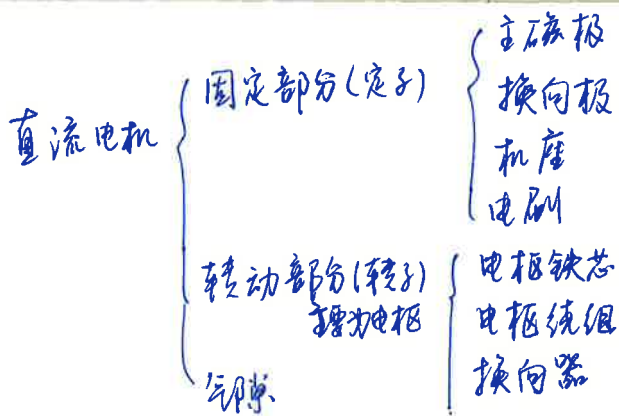 直流电机
固定部分(定子)
主磁极
换向极
机座
电刷
转动部分(转子)
主要为电枢
电枢铁芯
电枢绕组
换向器
气隙